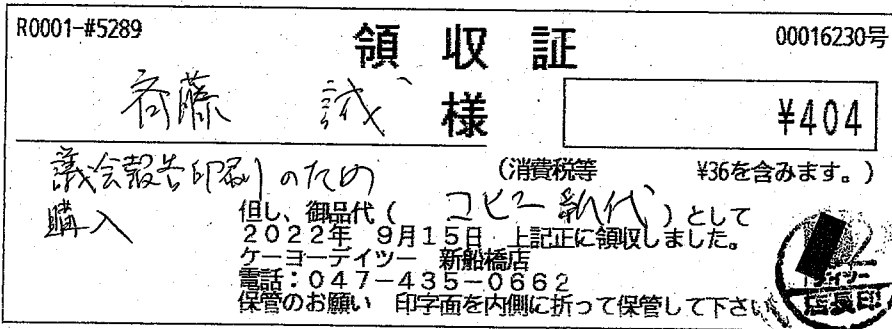 R0001-#5289
領収証
00016230号
斉藤 誠 様
¥404
(消費税等 ¥36を含みます。)
議会報告印刷のため
購入
但し、御品代(コピー紙代)として
2022年 9月15日 上記正に領収しました。
ケーヨーデイツー 新船橋店
電話:047-435-0662
保管のお願い 印字面を内側に折って保管して下さい
デイツー
店長印